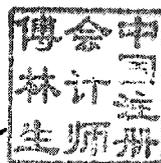 中国注册
会计师
傅林生